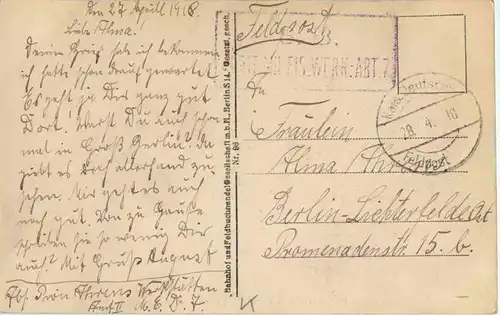 Den 27 April 1918.
Liebe Alma.
Deinen Brief habe ich bekommen
ich hatte schon drauf gewartet
Es geht ja Dir ganz gut
Dort. Warst Du auch schon
mal in Groß Berlin? Da
giebt es doch allerhand zu
sehen. Mir geht es auch
noch gut. Von zu Hause
schreiben Sie so wenig Dir
auch? Mit Gruß August
Abs. Pion Ahrens Werkstätten
II M. E. D. 7
Bahnhof und Feldbuchhandel Gesellschaft m. b. H., Berlin S 14. Gesetzl. gesch.
Nr. 98
Feldpost
WERK.-ABT. 7
An
Fräulein
Alma Ahrens
Berlin-Lichterfelde Ost
Promenadenstr. 15. b.
28. 4. 18
Feldpost
K